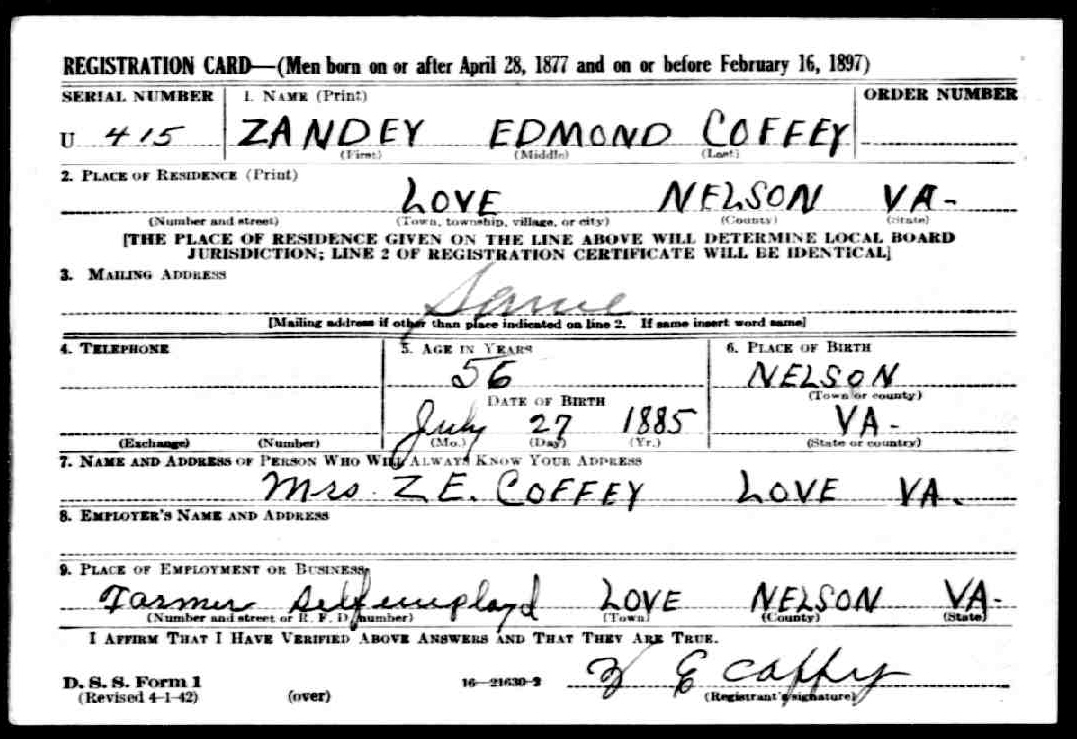 REGISTRATION CARD—(Men born on or after April 28, 1877 and on or before February 16, 1897)
SERIAL NUMBER 1. NAME (Print) ORDER NUMBER
U 415 ZANDEY EDMOND COFFEY
(First) (Middle) (Last)
2. PLACE OF RESIDENCE (Print)
LOVE NELSON VA-
(Number and street) (Town, township, village, or city) (County) (State)
[THE PLACE OF RESIDENCE GIVEN ON THE LINE ABOVE WILL DETERMINE LOCAL BOARD
JURISDICTION; LINE 2 OF REGISTRATION CERTIFICATE WILL BE IDENTICAL]
3. MAILING ADDRESS
Same
[Mailing address if other than place indicated on line 2. If same insert word same]
4. TELEPHONE 5. AGE IN YEARS 6. PLACE OF BIRTH
56 NELSON
DATE OF BIRTH (Town or county)
July 27 1885 VA-
(Exchange) (Number) (Mo.) (Day) (Yr.) (State or country)
7. NAME AND ADDRESS OF PERSON WHO WILL ALWAYS KNOW YOUR ADDRESS
Mrs. Z E. COFFEY LOVE VA.
8. EMPLOYER'S NAME AND ADDRESS
9. PLACE OF EMPLOYMENT OR BUSINESS
Farmer Selfemployd LOVE NELSON VA-
(Number and street or R. F. D. number) (Town) (County) (State)
I AFFIRM THAT I HAVE VERIFIED ABOVE ANSWERS AND THAT THEY ARE TRUE.
Z E Coffey
D. S. S. Form 1 16—21630-2
(Revised 4-1-42) (over) (Registrant's signature)